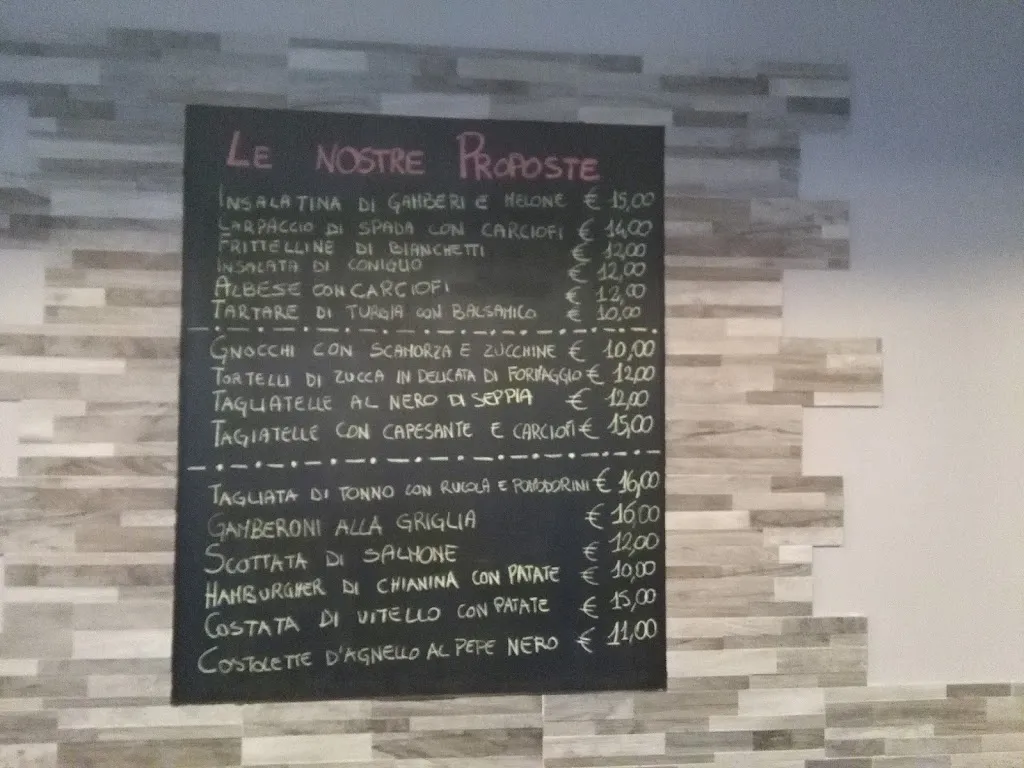 LE NOSTRE PROPOSTE
INSALATINA DI GAMBERI E MELONE € 15,00
CARPACCIO DI SPADA CON CARCIOFI € 14,00
FRITTELLINE DI BIANCHETTI € 12,00
INSALATA DI CONIGLIO € 12,00
ALBESE CON CARCIOFI € 12,00
TARTARE DI TURGIA CON BALSAMICO € 10,00
GNOCCHI CON SCAMORZA E ZUCCHINE € 10,00
TORTELLI DI ZUCCA IN DELICATA DI FORMAGGIO € 12,00
TAGLIATELLE AL NERO DI SEPPIA € 12,00
TAGIATELLE CON CAPESANTE E CARCIOFI € 15,00
TAGLIATA DI TONNO CON RUCOLA E POMODORINI € 16,00
GAMBERONI ALLA GRIGLIA € 16,00
SCOTTATA DI SALMONE € 12,00
HAMBURGHER DI CHIANINA CON PATATE € 10,00
COSTATA DI VITELLO CON PATATE € 15,00
COSTOLETTE D'AGNELLO AL PEPE NERO € 11,00